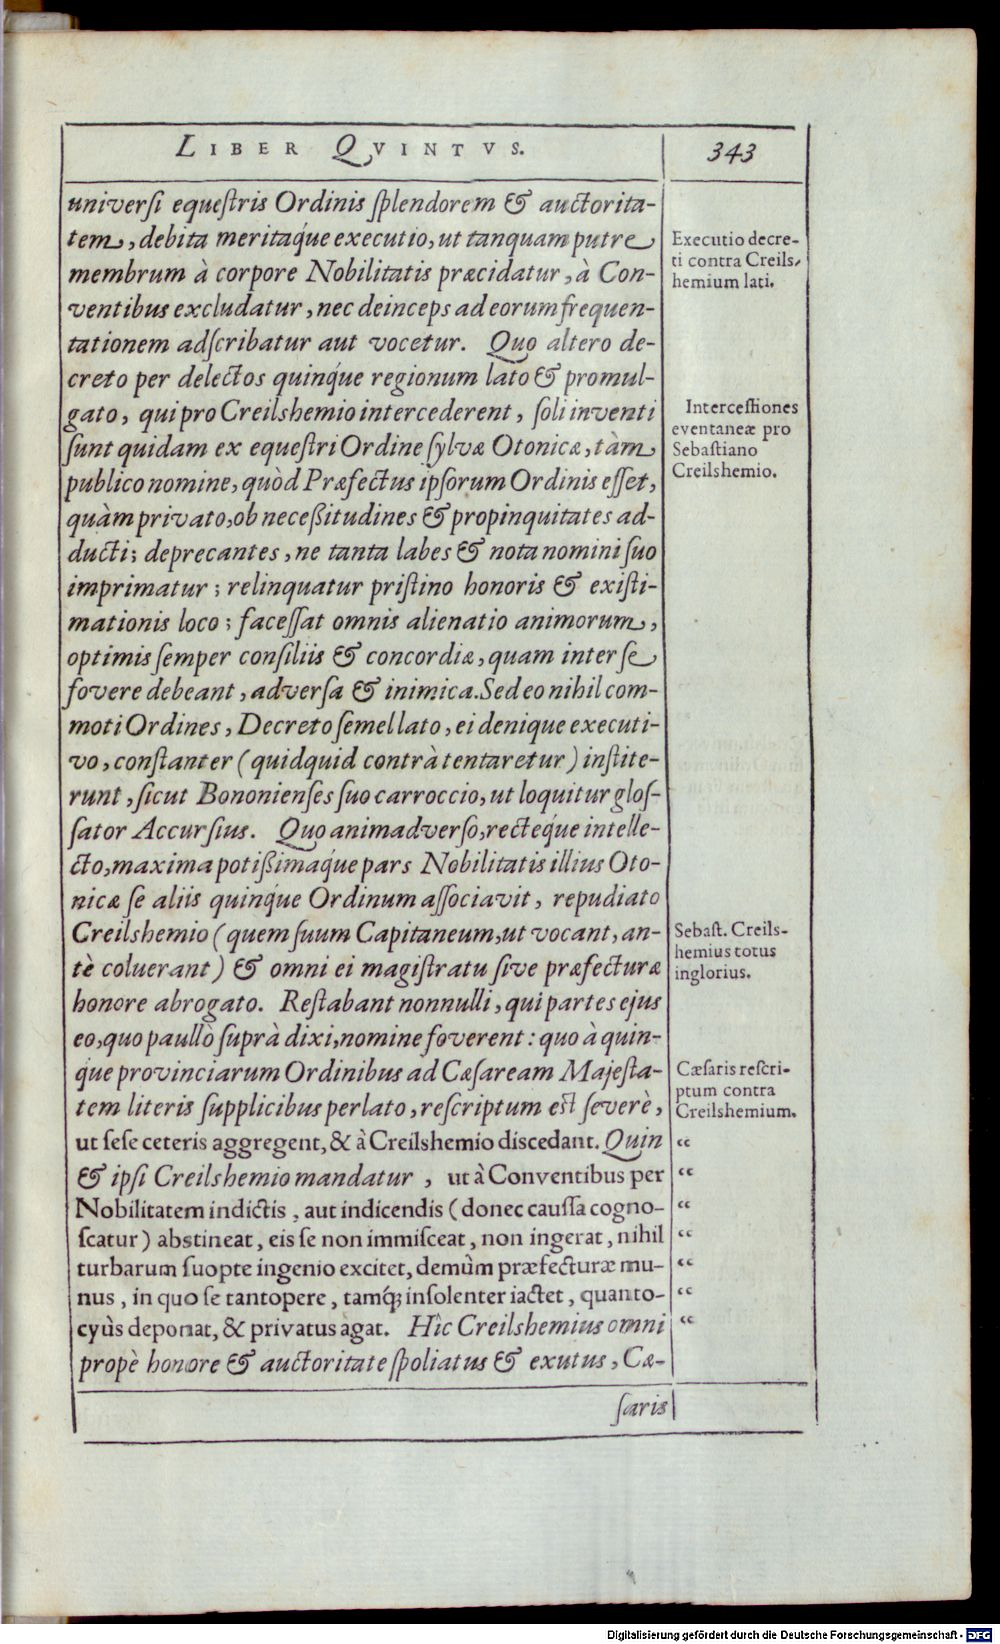 LIBER QVINTVS.
343
universi equeſtris Ordinis ſplendorem & auctorita-
tem, debita meritaq́ue executio, ut tanquam putre
membrum à corpore Nobilitatis præcidatur, à Con-
ventibus excludatur, nec deinceps ad eorum frequen-
tationem adſcribatur aut vocetur. Quo altero de-
creto per delectos quinq́ue regionum lato & promul-
gato, qui pro Creilshemio intercederent, ſoli inventi
ſunt quidam ex equeſtri Ordine ſylvæ Otonicæ, tàm
publico nomine, quòd Præfectus ipſorum Ordinis eſſet,
quàm privato, ob neceßitudines & propinquitates ad-
ducti; deprecantes, ne tanta labes & nota nomini ſuo
imprimatur; relinquatur priſtino honoris & exiſti-
mationis loco; faceſſat omnis alienatio animorum,
optimis ſemper conſiliis & concordiæ, quam inter ſe
fovere debeant, adverſa & inimica. Sed eo nihil com-
moti Ordines, Decreto ſemel lato, ei denique executi-
vo, conſtanter (quidquid contrà tentaretur) inſtite-
runt, ſicut Bononienſes ſuo carroccio, ut loquitur gloſ-
ſator Accurſius. Quo animadverſo, recteq́ue intelle-
cto, maxima potißimaq́ue pars Nobilitatis illius Oto-
nicæ ſe aliis quinq́ue Ordinum aſſociavit, repudiato
Creilshemio (quem ſuum Capitaneum, ut vocant, an-
tè coluerant) & omni ei magiſtratu ſive præfecturæ
honore abrogato. Reſtabant nonnulli, qui partes ejus
eo, quo paullò ſuprà dixi, nomine foverent: quo à quin-
q́ue provinciarum Ordinibus ad Cæſaream Majeſta-
tem literis ſupplicibus perlato, reſcriptum eſt ſeverè,
ut ſeſe ceteris aggregent, & à Creilshemio discedant. Quin
& ipſi Creilshemio mandatur, ut à Conventibus per
Nobilitatem indictis, aut indicendis (donec cauſſa cogno-
ſcatur) abstineat, eis ſe non immiſceat, non ingerat, nihil
turbarum ſuopte ingenio excitet, demùm præfecturæ mu-
nus, in quo ſe tantopere, tamq́; inſolenter iactet, quanto-
cyùs deponat, & privatus agat. Hîc Creilshemius omni
propè honore & auctoritate ſpoliatus & exutus, Cæ-
ſaris
Executio decre-
ti contra Creils-
hemium lati.
Interceſſiones
eventaneæ pro
Sebaſtiano
Creilshemio.
Sebaſt. Creils-
hemius totus
inglorius.
Cæſaris reſcri-
ptum contra
Creilshemium.
“
“
“
“
“
“
“
Digitalisierung gefördert durch die Deutsche Forschungsgemeinschaft - DFG